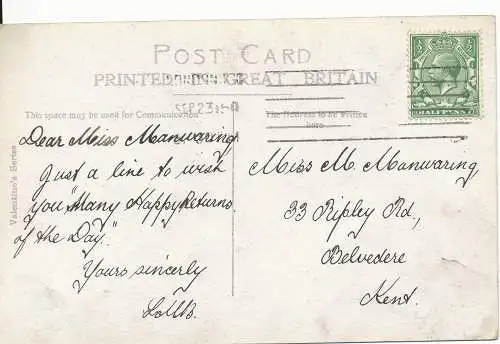 POST CARD
PRINTED IN GREAT BRITAIN
This space may be used for Communication
The Address to be written
here
SEP 23
HALFPENNY
Valentine's Series
Dear Miss Manwaring,
Just a line to wish
you "Many Happy Returns
of the Day."
Yours sincerely
Miss M. Manwaring,
33 Ripley Rd,
Belvedere
Kent.